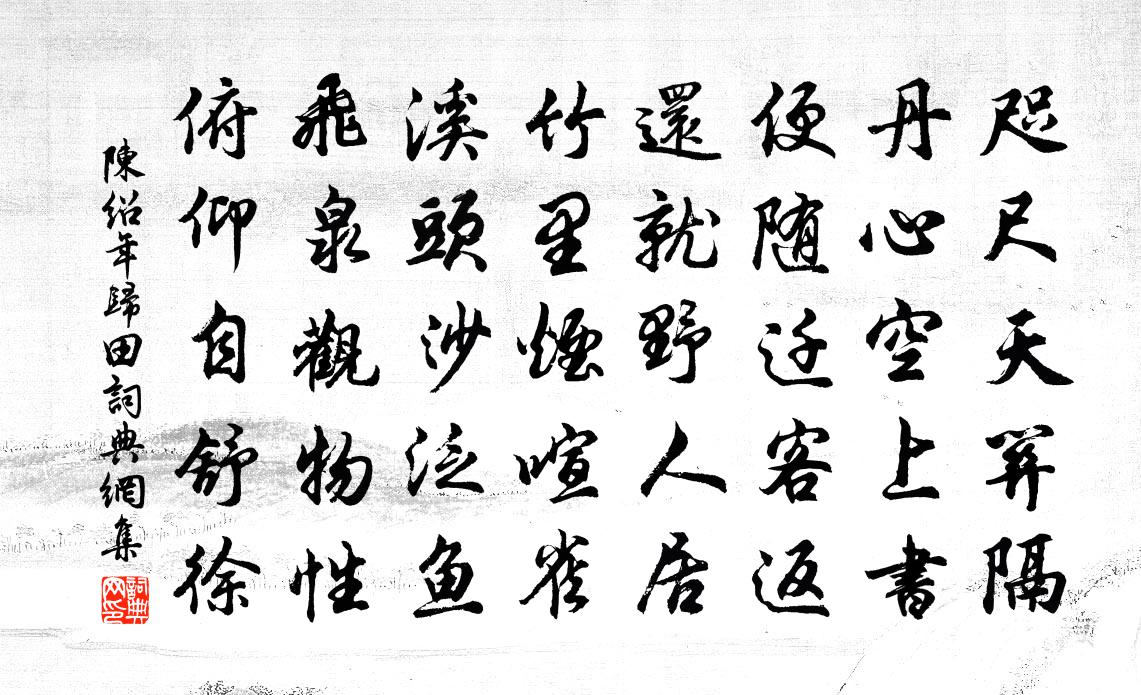 咫尺天關隔
丹心空上書
便隨遷客返
還就野人居
竹里煙喧雀
溪頭沙泛魚
飛泉觀物性
俯仰自舒徐
陳紹年歸田詞典網集
詞典网印